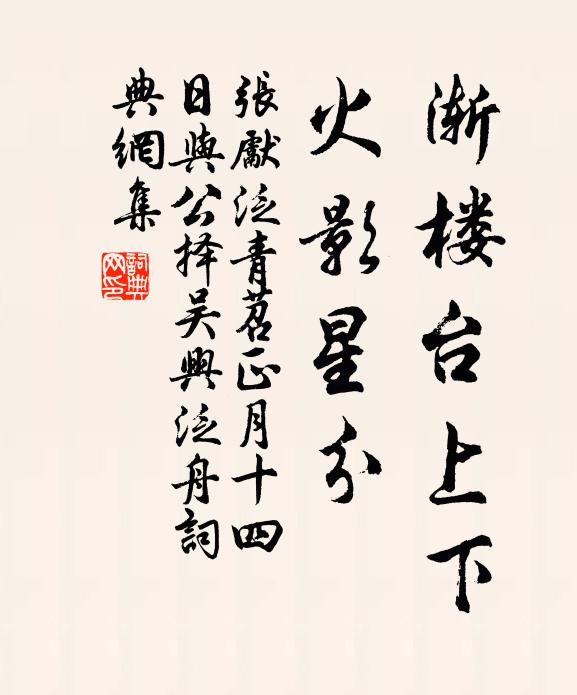 渐楼台上下
火影星分
張獻泛青苕正月十四
日與公择吴興泛舟詞
典網集
詞典网印